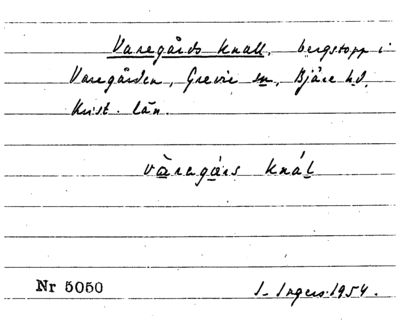 Varegårds knall, bergstopp i
Varegården, Grevie sn, Bjäre hd,
Krist. län.
våragárs knál
Nr 5050
I. Ingers 1954.